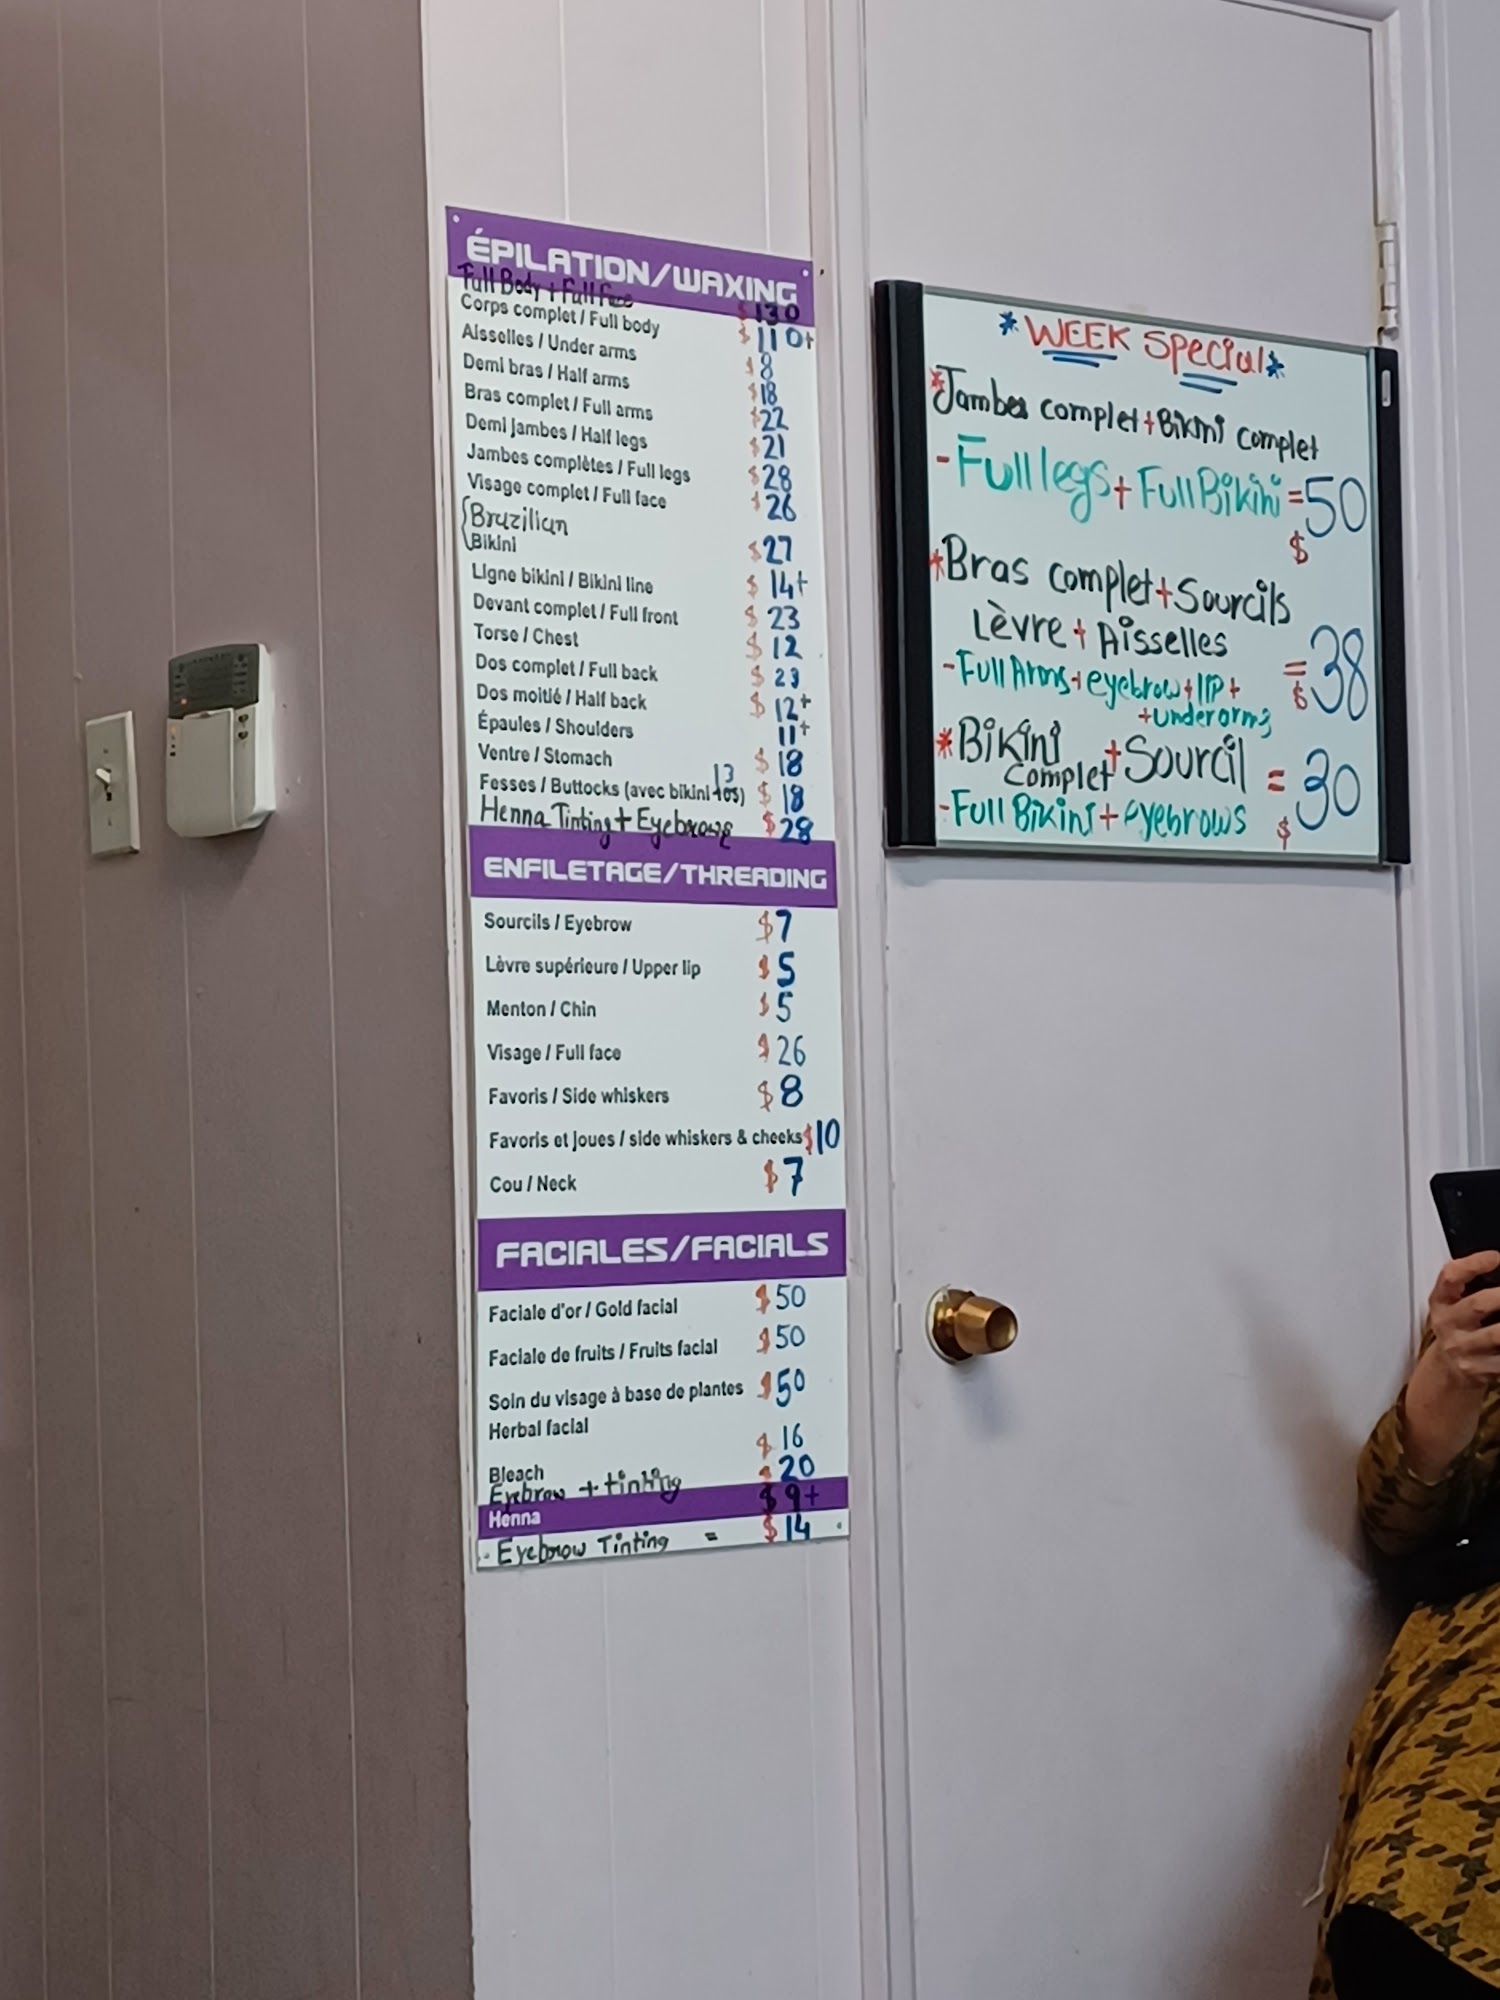 ÉPILATION/WAXING
Full Body + Full Face $130
Corps complet / Full body $110+
Aisselles / Under arms $8
Demi bras / Half arms $18
Bras complet / Full arms $22
Demi jambes / Half legs $21
Jambes complètes / Full legs $28
Visage complet / Full face $26
Brazilian
Bikini $27
Ligne bikini / Bikini line $14+
Devant complet / Full front $23
Torse / Chest $12
Dos complet / Full back $23
Dos moitié / Half back $12+
Épaules / Shoulders 11+
Ventre / Stomach $18
Fesses / Buttocks (avec bikini 13 $18
Henna Tinting + Eyebrows $28
ENFILETAGE/THREADING
Sourcils / Eyebrow $7
Lèvre supérieure / Upper lip $5
Menton / Chin $5
Visage / Full face $26
Favoris / Side whiskers $8
Favoris et joues / side whiskers & cheeks $10
Cou / Neck $7
FACIALES/FACIALS
Faciale d'or / Gold facial $50
Faciale de fruits / Fruits facial $50
Soin du visage à base de plantes $50
Herbal facial
Bleach $16
Eyebrow + tinting $20
Henna $9+
Eyebrow Tinting = $14
*WEEK Special*
*Jambes complet+Bikini complet
-Full legs+Full Bikini = $50
*Bras complet+Sourcils
Lèvre+Aisselles
-Full Arms+eyebrow+lip+ = $38
+underarms
*Bikini +Sourcil = $30
complet
-Full Bikini+eyebrows